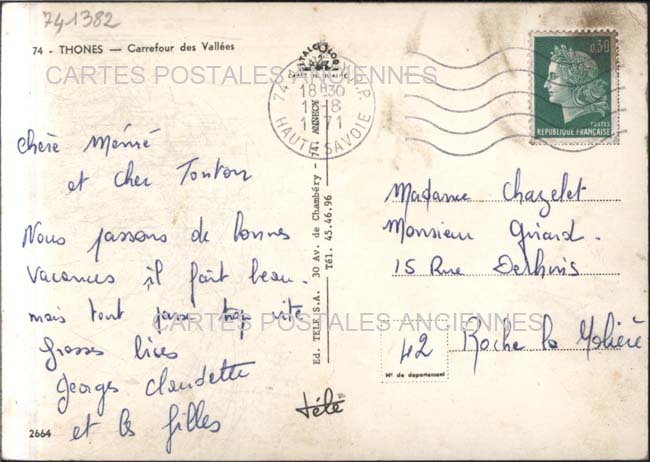 741382
74 - THONES — Carrefour des Vallées
CARTES POSTALES ANCIENNES
chère Mémé
et cher Tonton
Nous passons de bonnes
vacances il fait beau.
mais tout passe trop vite
Grosses bises
Georges Claudette
et les filles
2664
Ed. TELE S.A. 30 Av. de Chambéry - 74. ANNECY
Tél. 45.46.96
télé
18H30
1-8
1971
HAUTE SAVOIE
0,30
POSTES
REPUBLIQUE FRANÇAISE
Madame Chazelet
Monsieur Girard.
15 Rue
42 Roche la Molière
N° de département
CARTES POSTALES ANCIENNES